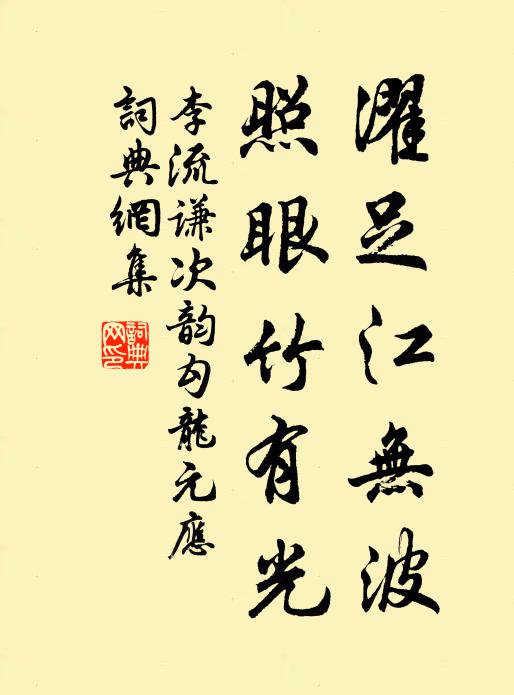 濯足江無波
照眼竹有光
李流谦次韵句龍元應
詞典網集
詞典網印